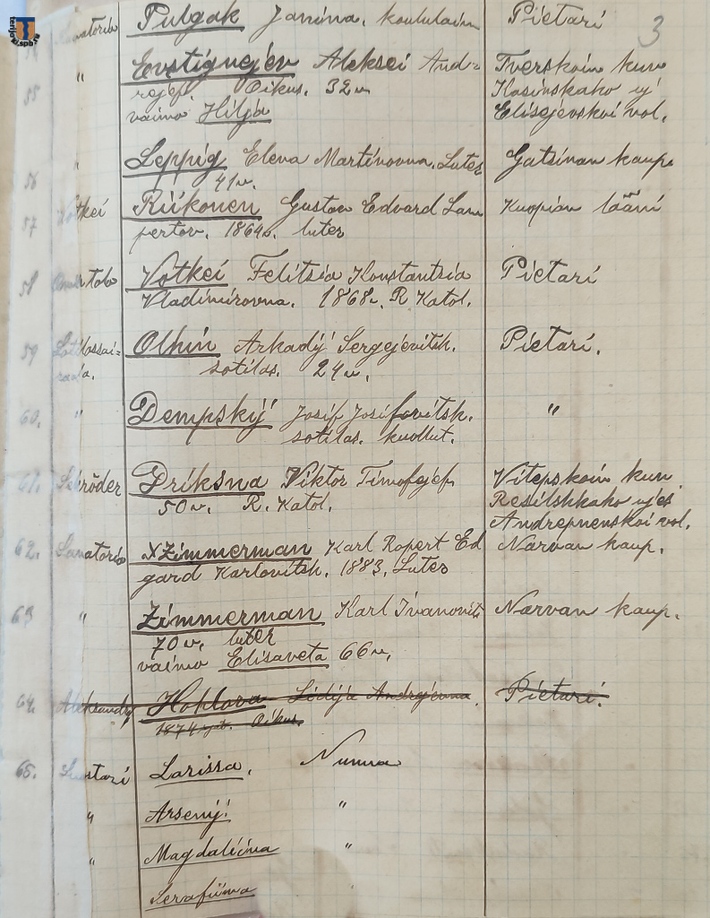 3
Sanatorio Pulgak Janina, koululainen Pietari
" Evstignejev Aleksei And-
rejef Oikus. 32 v. Tverskoin kuv
55 Kosinskaho uj
vaimo Hilja Elisejevskoi vol.
56 " Leppig Elena Martinovna. Luter Gatsinan kaup.
41 v.
57 Votkei Riikonen Gustav Edvard Lam Kuopion lääni
pertov. 1864 s. luter
58 Votkei Felitsia Konstantsia Pietari
Vladimirovna. 1868 v. R Katol.
59 Olhin Arkadij Sergejevitsh. Pietari.
sotilas. 24 v.
60. " Dempskij Josif Josifovitsh. "
sotilas. kuollut.
61. Schröder Driksna Viktor Timofejef Vitepskoin kuv.
50 v. R. Katol. Resitshkaho ujes
Andrepnenskoi vol.
62. Sanatorio x Zimmerman Karl Ropert Ed Narvan kaup.
gard Karlovitsh. 1883, Luter
63 " Zimmerman Karl Ivanovits Narvan kaup.
70 v. luter
vaimo Elisaveta 66 v.
64. Aleksandr Hohlova Lidija Andrejevna. Pietari.
1874 Oikus.
65. Larissa. Nunna
" Arsenij! "
" Magdaliina "
Serafiima "